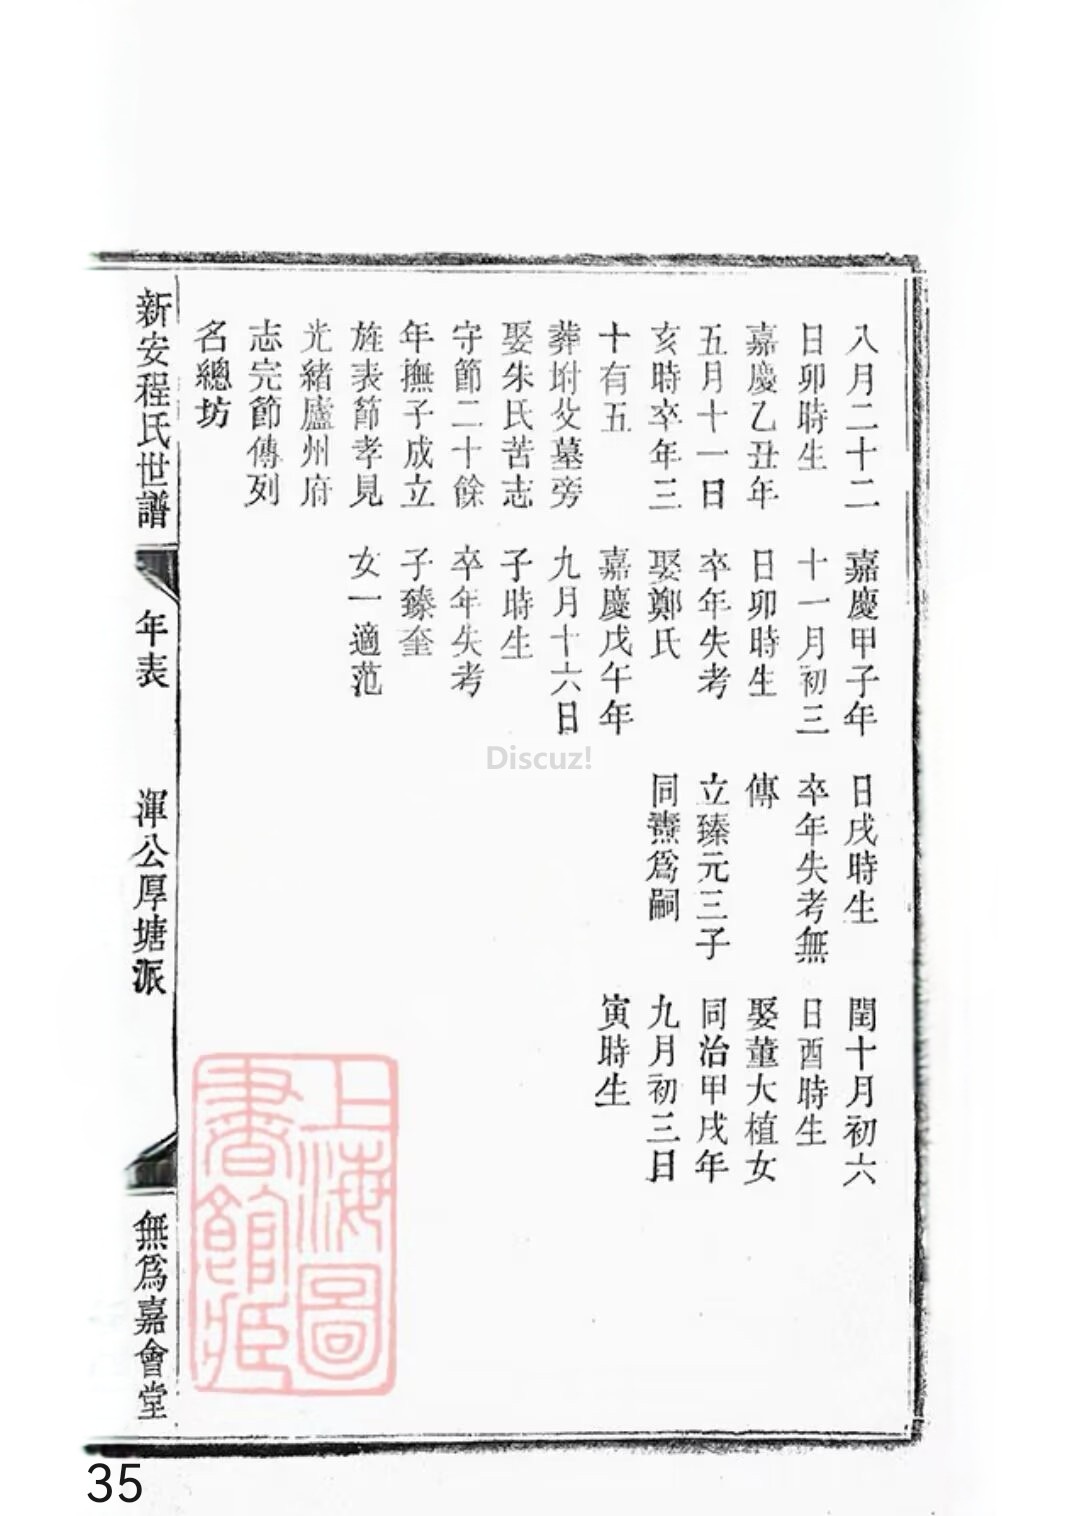 八月二十二
日卯時生
嘉慶乙丑年
五月十一日
亥時卒年三
十有五
葬坿父墓旁
娶朱氏苦志
守節二十餘
年撫子成立
旌表節孝見
光緒廬州府
志完節傳列
名總坊
嘉慶甲子年
十一月初三
日卯時生
卒年失考
娶鄭氏
嘉慶戊午年
九月十六日
子時生
卒年失考
子臻奎
女一適范
日戌時生
卒年失考無
傳
立臻元三子
同燾爲嗣
閏十月初六
日酉時生
娶董大植女
同治甲戌年
九月初三日
寅時生
新安程氏世譜
年表
渾公厚塘派
無爲嘉會堂
上海圖
書館藏
Discuz!
35